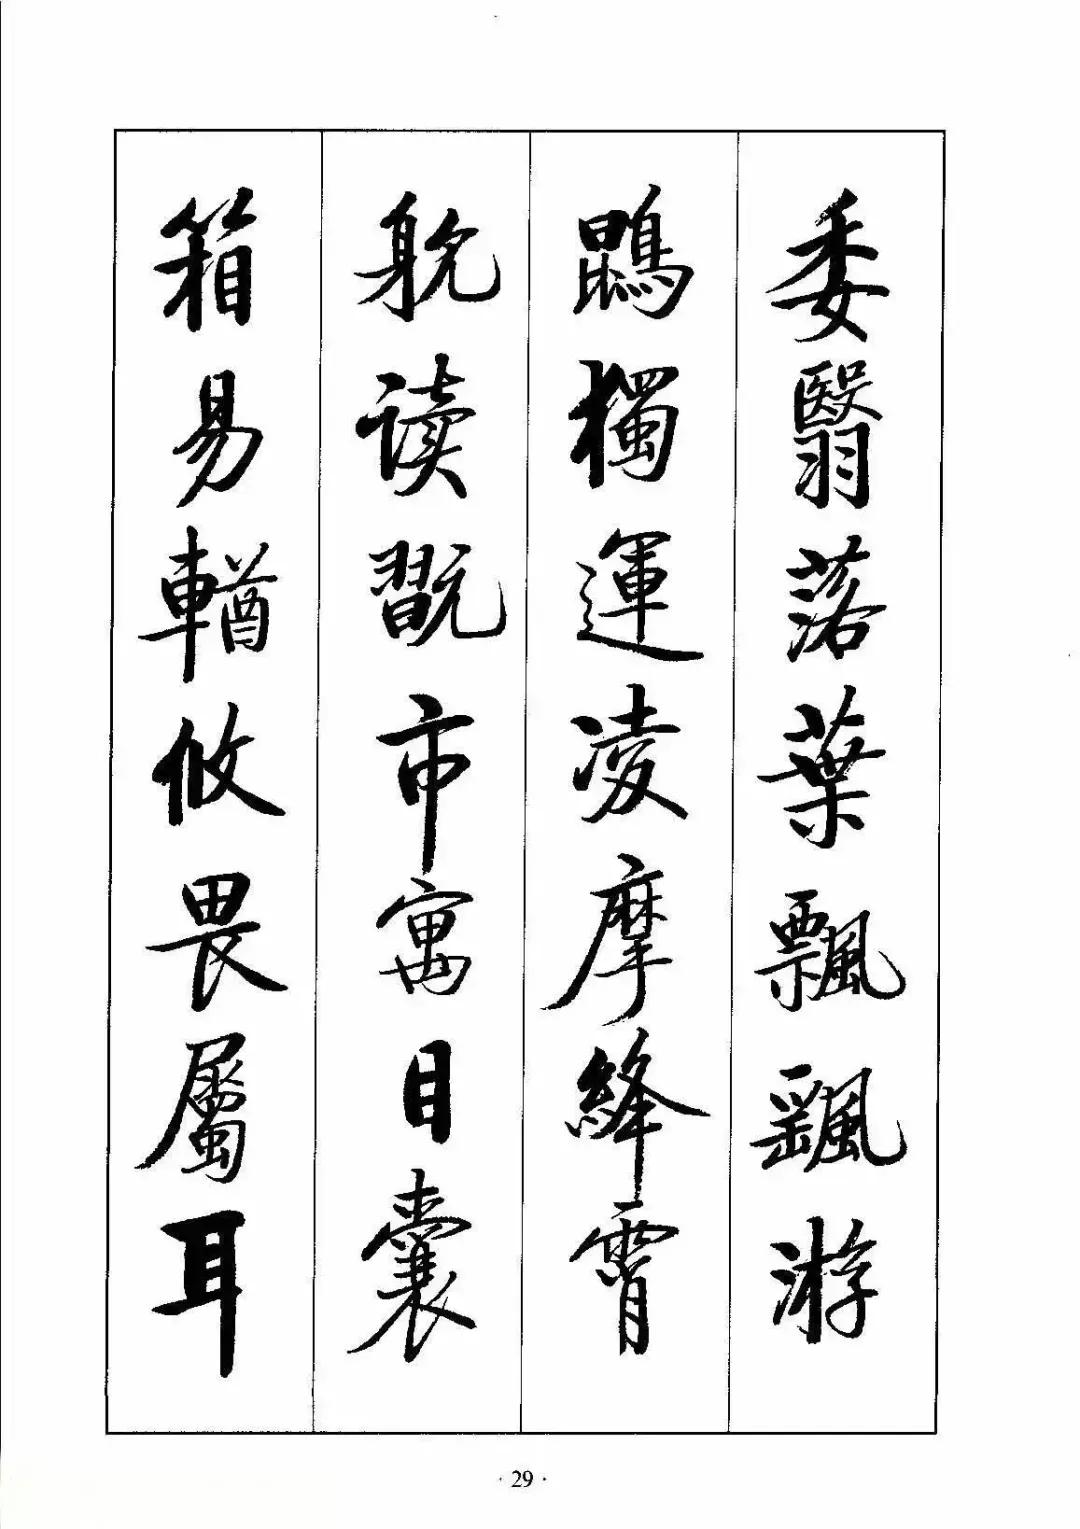 委翳落葉飄颻游
鵾獨運凌摩絳霄
躭读翫市寓目囊
箱易輶攸畏屬耳
· 29 ·